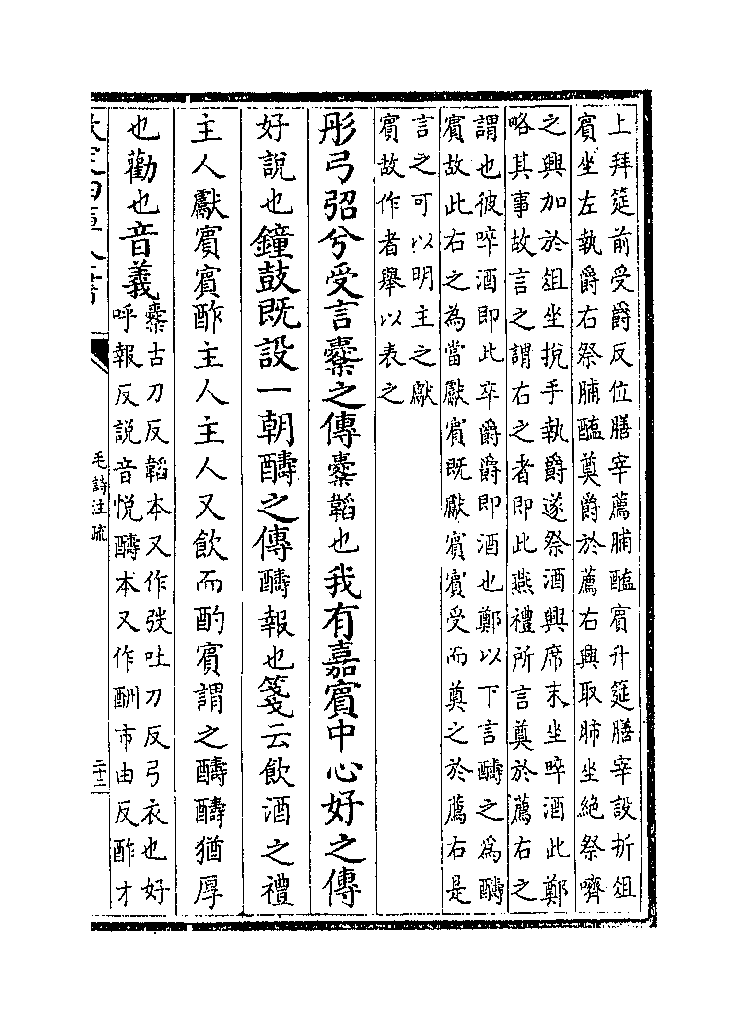 上拜筵前受爵反位膳宰薦脯醢賓升筵膳宰設折俎
賓坐左執爵右祭脯醢奠爵於薦右興取肺坐絶祭嚌
之興加於俎坐挩手執爵遂祭酒興席末坐啐酒此鄭
略其事故言之謂右之者即此燕禮所言奠於薦右之
謂也彼啐酒即此卒爵爵即酒也鄭以下言醻之爲醻
賓故此右之為當獻賓既獻賓賓受而奠之於薦右是
言之可以明主之獻
賓故作者舉以表之
彤弓弨兮受言櫜之傳櫜韜也我有嘉賓中心好之傳
好說也鐘鼓既設一朝醻之傳醻報也箋云飲酒之禮
主人獻賓賓酢主人主人又飲而酌賓謂之醻醻猶厚
也勸也音義
櫜古刀反韜本又作弢吐刀反弓衣也好
呼報反説音悦醻本又作酬市由反酢才
毛詩注疏
二十三